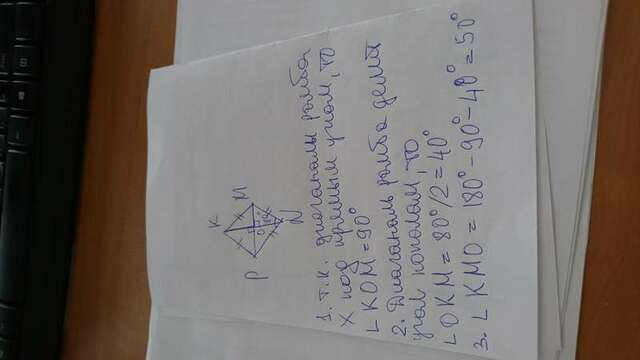 К
P
M
O
80°
N
1. т.к. диаганалы ромба
X под прямым углом, то
∟KOM = 90°
2. Диаганаль ромба делит
угол пополам, то
∟OKM = 80°/2 = 40°
3. ∟KMO = 180° - 90° - 40° = 50°